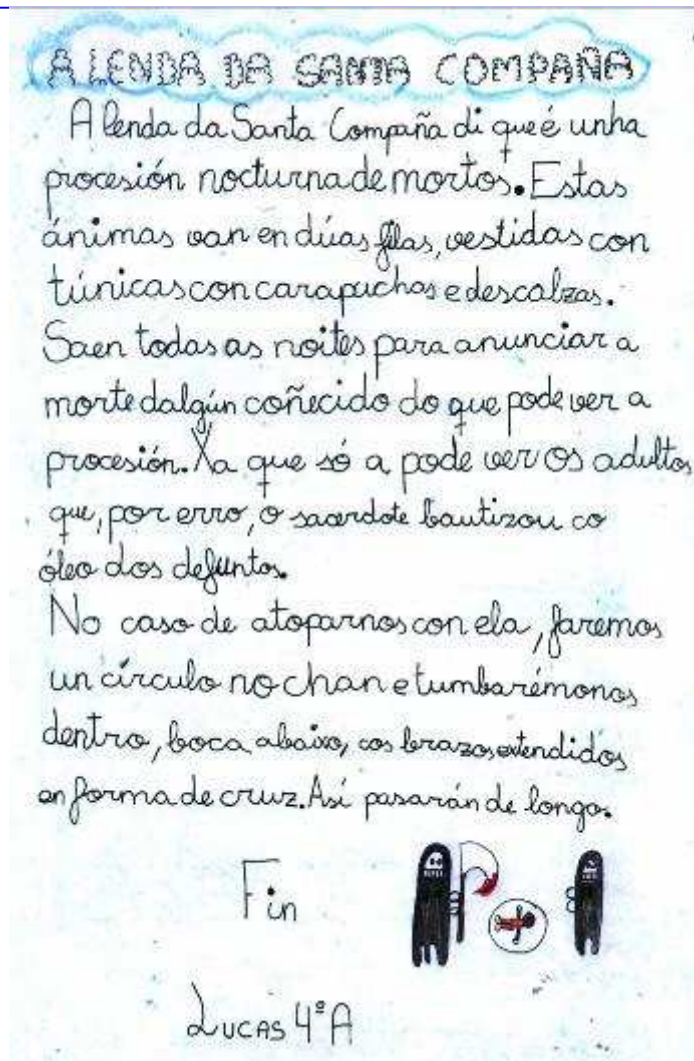 A LENDA DA SANTA COMPAÑA
A lenda da Santa Compaña di que é unha
procesión nocturna de mortos. Estas
ánimas van en dúas filas, vestidas con
túnicas con carapuchas e descalzas.
Saen todas as noites para anunciar a
morte dalgún coñecido do que pode ver a
procesión. Xa que só a pode ver os adultos
que, por erro, o sacerdote bautizou co
óleo dos defuntos.
No caso de atoparnos con ela, faremos
un círculo no chan e tumbarémonos
dentro, boca abaixo, cos brazos extendidos
en forma de cruz. Así pasarán de longo.
Fin
Lucas 4º A